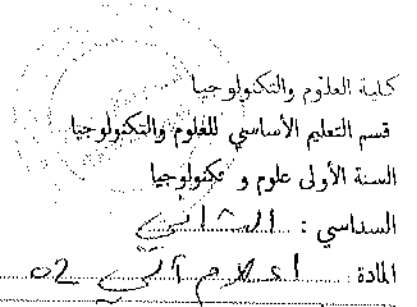 كلية العلوم والتكنولوجيا
قسم التعليم الأساسي للعلوم والتكنولوجيا
السنة الأولى علوم و تكنولوجيا
السداسي : الثاني
المادة : اعلام آلي 02